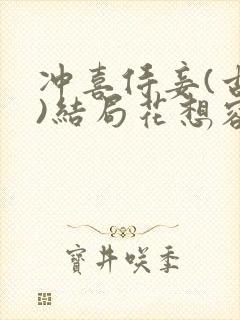 冲喜侍妾(古
)結局花想容
寶井咲季